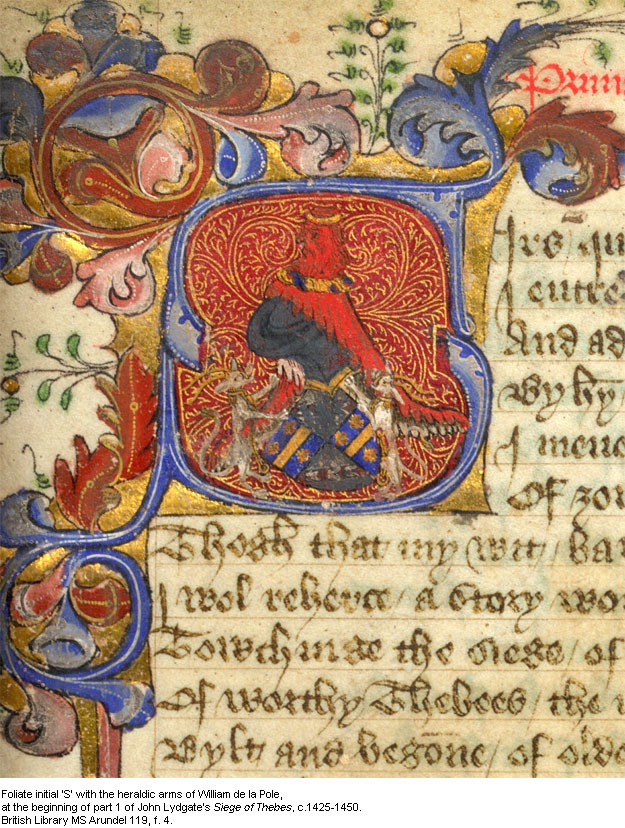 Prim
irs qu
I entre
And ad
Wyhy
I mene
Of 30
Thogh that my wit / ba
I wol reherce / a story wo
Towchinge the siege / of
Of worthy Thebees / the
Wylt and begone / of olde
Foliate initial 'S' with the heraldic arms of William de la Pole,
at the beginning of part 1 of John Lydgate's Siege of Thebes, c.1425-1450.
British Library MS Arundel 119, f. 4.